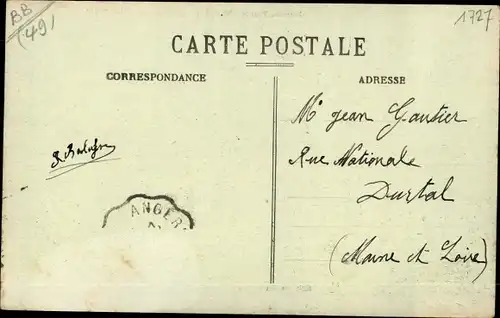 BB
(49)
1727
CARTE POSTALE
CORRESPONDANCE
ADRESSE
Mr Jean Gautier
Rue Nationale
Durtal
(Maine et Loire)
ANGERS